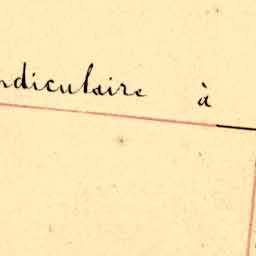 ndiculaire à